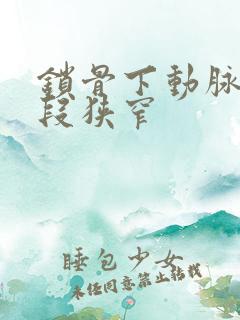 鎖骨下動脉
段狹窄
睡包少女
未經同意禁止轉載